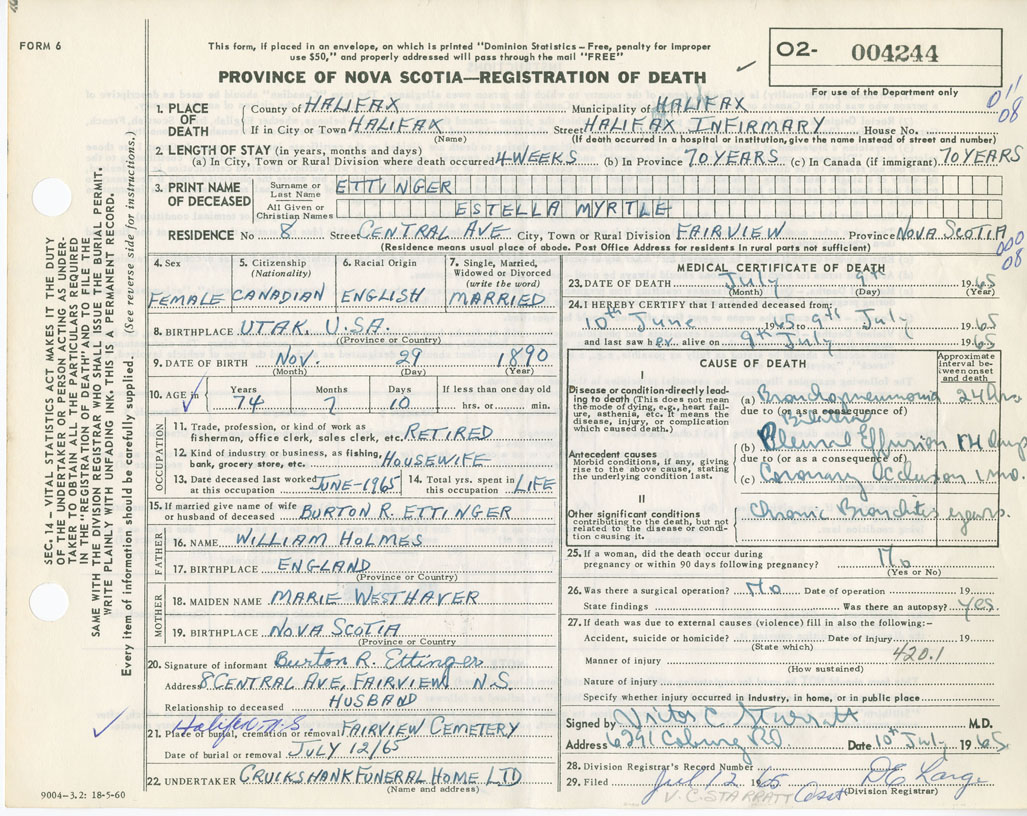 FORM 6
This form, if placed in an envelope, on which is printed "Dominion Statistics – Free, penalty for improper
use $50," and properly addressed will pass through the mail "FREE"
PROVINCE OF NOVA SCOTIA—REGISTRATION OF DEATH
O2- 004244
For use of the Department only
011
08
1. PLACE OF DEATH
County of HALIFAX Municipality of HALIFAX
If in City or Town HALIFAX Street HALIFAX INFIRMARY House No.
(Name) (If death occurred in a hospital or institution, give its name instead of street and number)
2. LENGTH OF STAY (in years, months and days)
(a) In City, Town or Rural Division where death occurred 4 WEEKS (b) In Province 70 YEARS (c) In Canada (if immigrant) 70 YEARS
3. PRINT NAME OF DECEASED
Surname or Last Name ETTINGER
All Given or Christian Names ESTELLA MYRTLE
RESIDENCE No 8 Street CENTRAL AVE City, Town or Rural Division FAIRVIEW Province NOVA SCOTIA
(Residence means usual place of abode. Post Office Address for residents in rural parts not sufficient)
000
08
4. Sex
FEMALE
5. Citizenship
(Nationality)
CANADIAN
6. Racial Origin
ENGLISH
7. Single, Married,
Widowed or Divorced
(write the word)
MARRIED
8. BIRTHPLACE UTAK, U.S.A.
(Province or Country)
9. DATE OF BIRTH NOV. 29 1890
(Month) (Day) (Year)
10. AGE in Years Months Days If less than one day old
74 7 10 hrs. or min.
OCCUPATION
11. Trade, profession, or kind of work as
fisherman, office clerk, sales clerk, etc. RETIRED
12. Kind of industry or business, as fishing,
bank, grocery store, etc. HOUSEWIFE
13. Date deceased last worked
at this occupation JUNE-1965
14. Total yrs. spent in
this occupation LIFE
15. If married give name of wife
or husband of deceased BURTON R. ETTINGER
FATHER
16. NAME WILLIAM HOLMES
17. BIRTHPLACE ENGLAND
(Province or Country)
MOTHER
18. MAIDEN NAME MARIE WESTHAVER
19. BIRTHPLACE NOVA SCOTIA
(Province or Country)
20. Signature of informant Burton R. Ettinger
Address 8 CENTRAL AVE, FAIRVIEW N.S.
Relationship to deceased HUSBAND
Halifax N.S
21. Place of burial, cremation or removal FAIRVIEW CEMETERY
Date of burial or removal JULY 12/65
22. UNDERTAKER CRUIKSHANK FUNERAL HOME LTD
(Name and address)
9004-3.2: 18-5-60
MEDICAL CERTIFICATE OF DEATH
23. DATE OF DEATH July 9th 1965
(Month) (Day) (Year)
24. I HEREBY CERTIFY that I attended deceased from:
10th June 1965 to 9th July 1965
and last saw her alive on 9th July 1965
CAUSE OF DEATH
Approximate
interval between
onset
and death
I
Disease or condition directly leading
to death (This does not mean
the mode of dying, e.g., heart failure,
asthenia, etc. It means the
disease, injury, or complication
which caused death.)
(a) Bronchopneumonia 24 hrs
due to (or as a consequence of)
Bilateral
(b) Pleural Effusion 14 days
Antecedent causes
Morbid conditions, if any, giving
rise to the above cause, stating
the underlying condition last.
due to (or as a consequence of)
(c) Coronary Occlusion 1 mo.
II
Other significant conditions
contributing to the death, but not
related to the disease or condition
causing it.
Chronic Bronchitis years.
25. If a woman, did the death occur during
pregnancy or within 90 days following pregnancy? No
(Yes or No)
26. Was there a surgical operation? No Date of operation 19
State findings Was there an autopsy? yes.
27. If death was due to external causes (violence) fill in also the following:–
Accident, suicide or homicide? Date of injury 19
(State which)
Manner of injury 420.1
(How sustained)
Nature of injury
Specify whether injury occurred in industry, in home, or in public place
Signed by Victor C Starratt M.D.
Address 6291 Coburg RD. Date 10th July 1965
28. Division Registrar's Record Number
29. Filed Jul 12 1965 D E Large
(Division Registrar)
V.C. STARRATT
SEC. 14 – VITAL STATISTICS ACT MAKES IT THE DUTY
OF THE UNDERTAKER OR PERSON ACTING AS UNDERTAKER
TO OBTAIN ALL THE PARTICULARS REQUIRED
IN THE "REGISTRATION OF DEATH" AND TO FILE THE
SAME WITH THE DIVISION REGISTRAR WHO SHALL ISSUE THE BURIAL PERMIT.
WRITE PLAINLY WITH UNFADING INK. THIS IS A PERMANENT RECORD.
Every item of information should be carefully supplied. (See reverse side for instructions.)